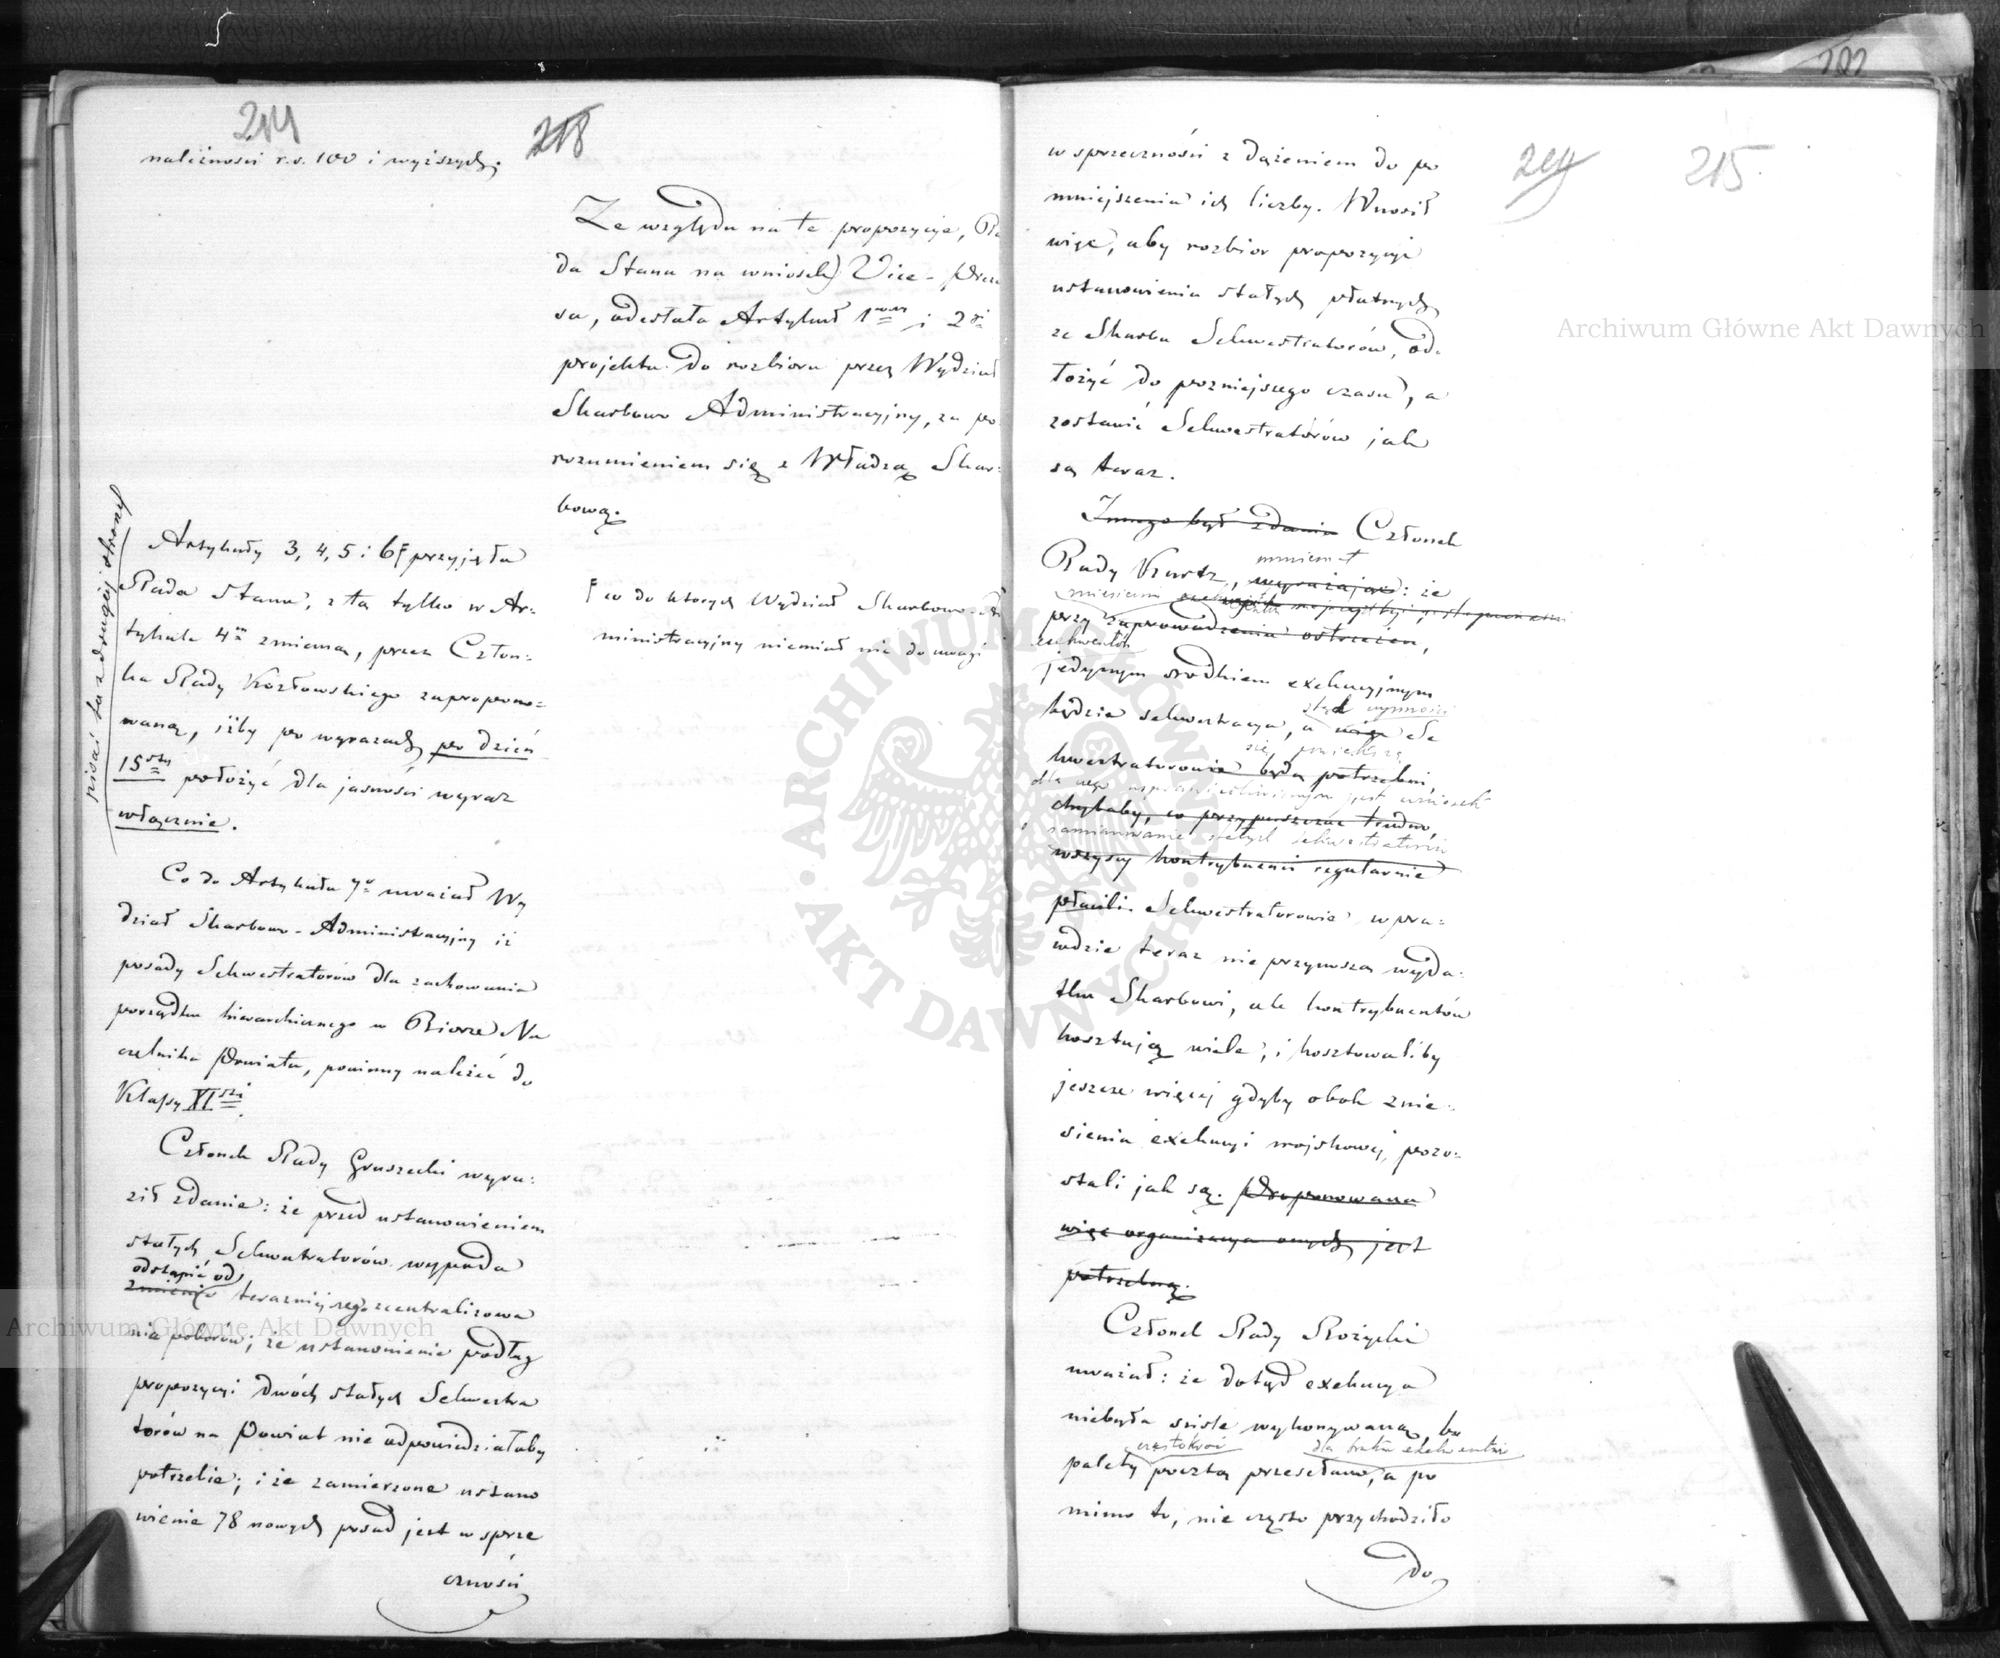 214
218
należności r.s. 100 i wyższych.
Ze względu na te propozycje, Ra
da Stanu na wniosek Vice-Preze
sa, odesłała Artykuł 1 i 2gi
projektu do rozbioru przez Wydział
Skarbowo Administracyjny, za po-
rozumieniem się z Władzą Skar-
bową.
pisać to z drugiej strony
Artykuły 3, 4, 5 i 6 przyjęła
Rada Stanu, z tą tylko w Ar-
tykule 4m zmianą, przez Człon-
ka Rady Kozłowskiego zapropono-
waną, iżby po wyrazach po dzień
15sty położyć dla jasności wyraz
włącznie.
co do których Wydział Skarbowo-Ad
ministracyjny niemiał nic do uwagi
Co do Artykułu 7o uważał Wy
dział Skarbowo-Administracyjny iż
posady Sekwestratorów dla zachowania
porządku hierarchicznego w Biorze Na
czelnika Powiatu, powinny należeć do
Klassy XIstéj.
Członek Rady Gruszecki wyra-
ził zdanie: że przed ustanowieniem
stałych Sekwestratorów wypada
odstąpić od
zmienić teraźniejszego zcentralizowa
nia poborów; że ustanowienie podług
propozycyi dwóch stałych Sekwestra
torów na Powiat nie odpowiedziałoby
potrzebie; i że zamierzone ustano
wienie 78 nowych posad jest w sprze
czności
202
219
215
w sprzeczności z dążeniem do po
mniejszenia ich liczby. Wnosił
więc, aby rozbiór propozycyi
ustanowienia stałych płatnych
ze Skarbu Sekwestratorów, od-
łożyć do pozniejszego czasu, a
zostawić Sekwestratorów jak
są teraz.
Innego był zdania Członek
mniemał
Rady Kurtz, wyrażając: że
przy zaprowadzeniu ostrzeżeń,
jedynym środkiem exekucyjnym
stąd czynności
będzie sekwestracya, a więc Se
się powiększą
kwestratorowie będą potrzebni,
dla czego usprawiedliwionym jest wniosek
chybaby, co przypuszczać trudno,
zamianowanie stałych sekwestratorów
wszyscy kontrybuenci regularnie
płacili. Sekwestratorowie wpra-
wdzie teraz nie przynoszą wyda-
tku Skarbowi, ale kontrybuentów
kosztują wiele, i kosztowaliby
jeszcze więcej gdyby obok znie-
sienia exekucyi wojskowej, pozo-
stali jak są. Proponowana
więc organizacya onych jest
potrzebną.
Członek Rady Rożycki
uważał: że dotąd exekucya
niebyła ściśle wykonywaną, bo
częstokroć dla braku exekwentów
palety pocztą przesełano, a po
mimo to, nie często przychodziło
do
Archiwum Główne Akt Dawnych
Archiwum Główne Akt Dawnych
ARCHIWUM GŁÓWNE AKT DAWNYCH